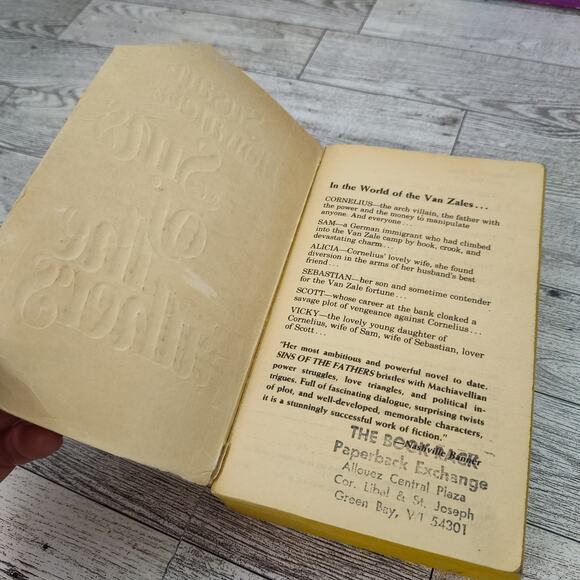 In the World of the Van Zales . . .
CORNELIUS—the arch villain, the father with
the power and the money to manipulate
anyone. And everyone . . .
SAM—a German immigrant who had climbed
into the Van Zale camp by hook, crook, and
devastating charm . . .
ALICIA—Cornelius' lovely wife, she found
diversion in the arms of her husband's best
friend . . .
SEBASTIAN—her son and sometime contender
for the Van Zale fortune . . .
SCOTT—whose career at the bank cloaked a
savage plot of vengeance against Cornelius . . .
VICKY—the lovely young daughter of
Cornelius, wife of Sam, wife of Sebastian, lover
of Scott . . .
"Her most ambitious and powerful novel to date.
SINS OF THE FATHERS bristles with Machiavellian
power struggles, love triangles, and political in-
trigues. Full of fascinating dialogue, surprising twists
of plot, and well-developed, memorable characters,
it is a stunningly successful work of fiction."
Nashville Banner
THE BOOK RACK
Paperback Exchange
Allouez Central Plaza
Cor. Libal & St. Joseph
Green Bay, WI 54301